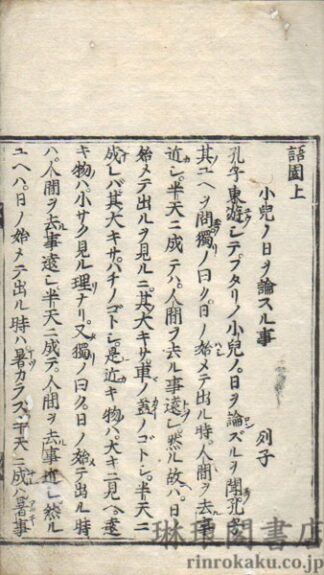 語園上
小兒ノ日ヲ論スル事 列子
孔子東遊シテフタリノ小兒ノ日ヲ論ズルヲ聞孔子
其ユヘヲ問獨ノ曰ク日ノ始メテ出ル時人間ヲ去事
近シ半天ニ成テハ人間ヲ去ル事遠シ然ル故ハ日ノ
始メテ出ルヲ見ルニ其大キサ車ノ蓋ノゴトシ半天ニ
成レバ其大キサハチノゴトシ是近キ物ハ大キニ見ヘ遠
キ物ハ小サク見ル理ナリ又獨ノ曰ク日ノ始テ出ル時
ハ人間ヲ去事遠シ半天ニ成テ人間ヲ去事近シ然ル
ユヘハ日ノ始メテ出ル時ハ暑カラス半天ニ成ハ暑事
琳琅閣書店
rinrokaku.co.jp